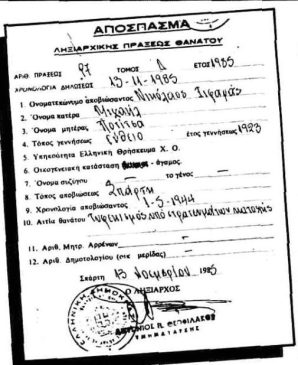 ΑΠΟΣΠΑΣΜΑ
ΛΗΞΙΑΡΧΙΚΗΣ ΠΡΑΞΕΩΣ ΘΑΝΑΤΟΥ
ΑΡΙΘ. ΠΡΑΞΕΩΣ 97 ΤΟΜΟΣ Δ ΕΤΟΣ 1985
ΧΡΟΝΟΛΟΓΙΑ ΔΗΛΩΣΕΩΣ 13-11-1985
1. Ονοματεπώνυμο αποβιώσαντος Νικόλαος
2. Όνομα πατέρα Μιχαήλ
3. Όνομα μητέρας Ποτίτσα
4. Τόπος γεννήσεως Γύθειο έτος γεννήσεως 1923
5. Υπηκοότητα Ελληνική Θρήσκευμα Χ. Ο.
6. Οικογενειακή κατάσταση - άγαμος.
7. Όνομα συζύγου — το γένος —
8. Τόπος αποβιώσεως Σπάρτη
9. Χρονολογία αποβιώσαντος 1-5-1944
10. Αιτία θανάτου Τυφεκισμός υπό στρατευμάτων κατοχής
11. Αριθ. Μητρ. Αρρένων —
12. Αριθ. Δημοτολογίου (οικ μερίδας) —
Σπάρτη 13 Νοεμβρίου 1985
Ο ΛΗΞΙΑΡΧΟΣ
ΕΛΛΗΝΙΚΗ ΔΗΜΟΚΡΑΤΙΑ
ΤΜΗΜΑΤΑΡΧΗΣ